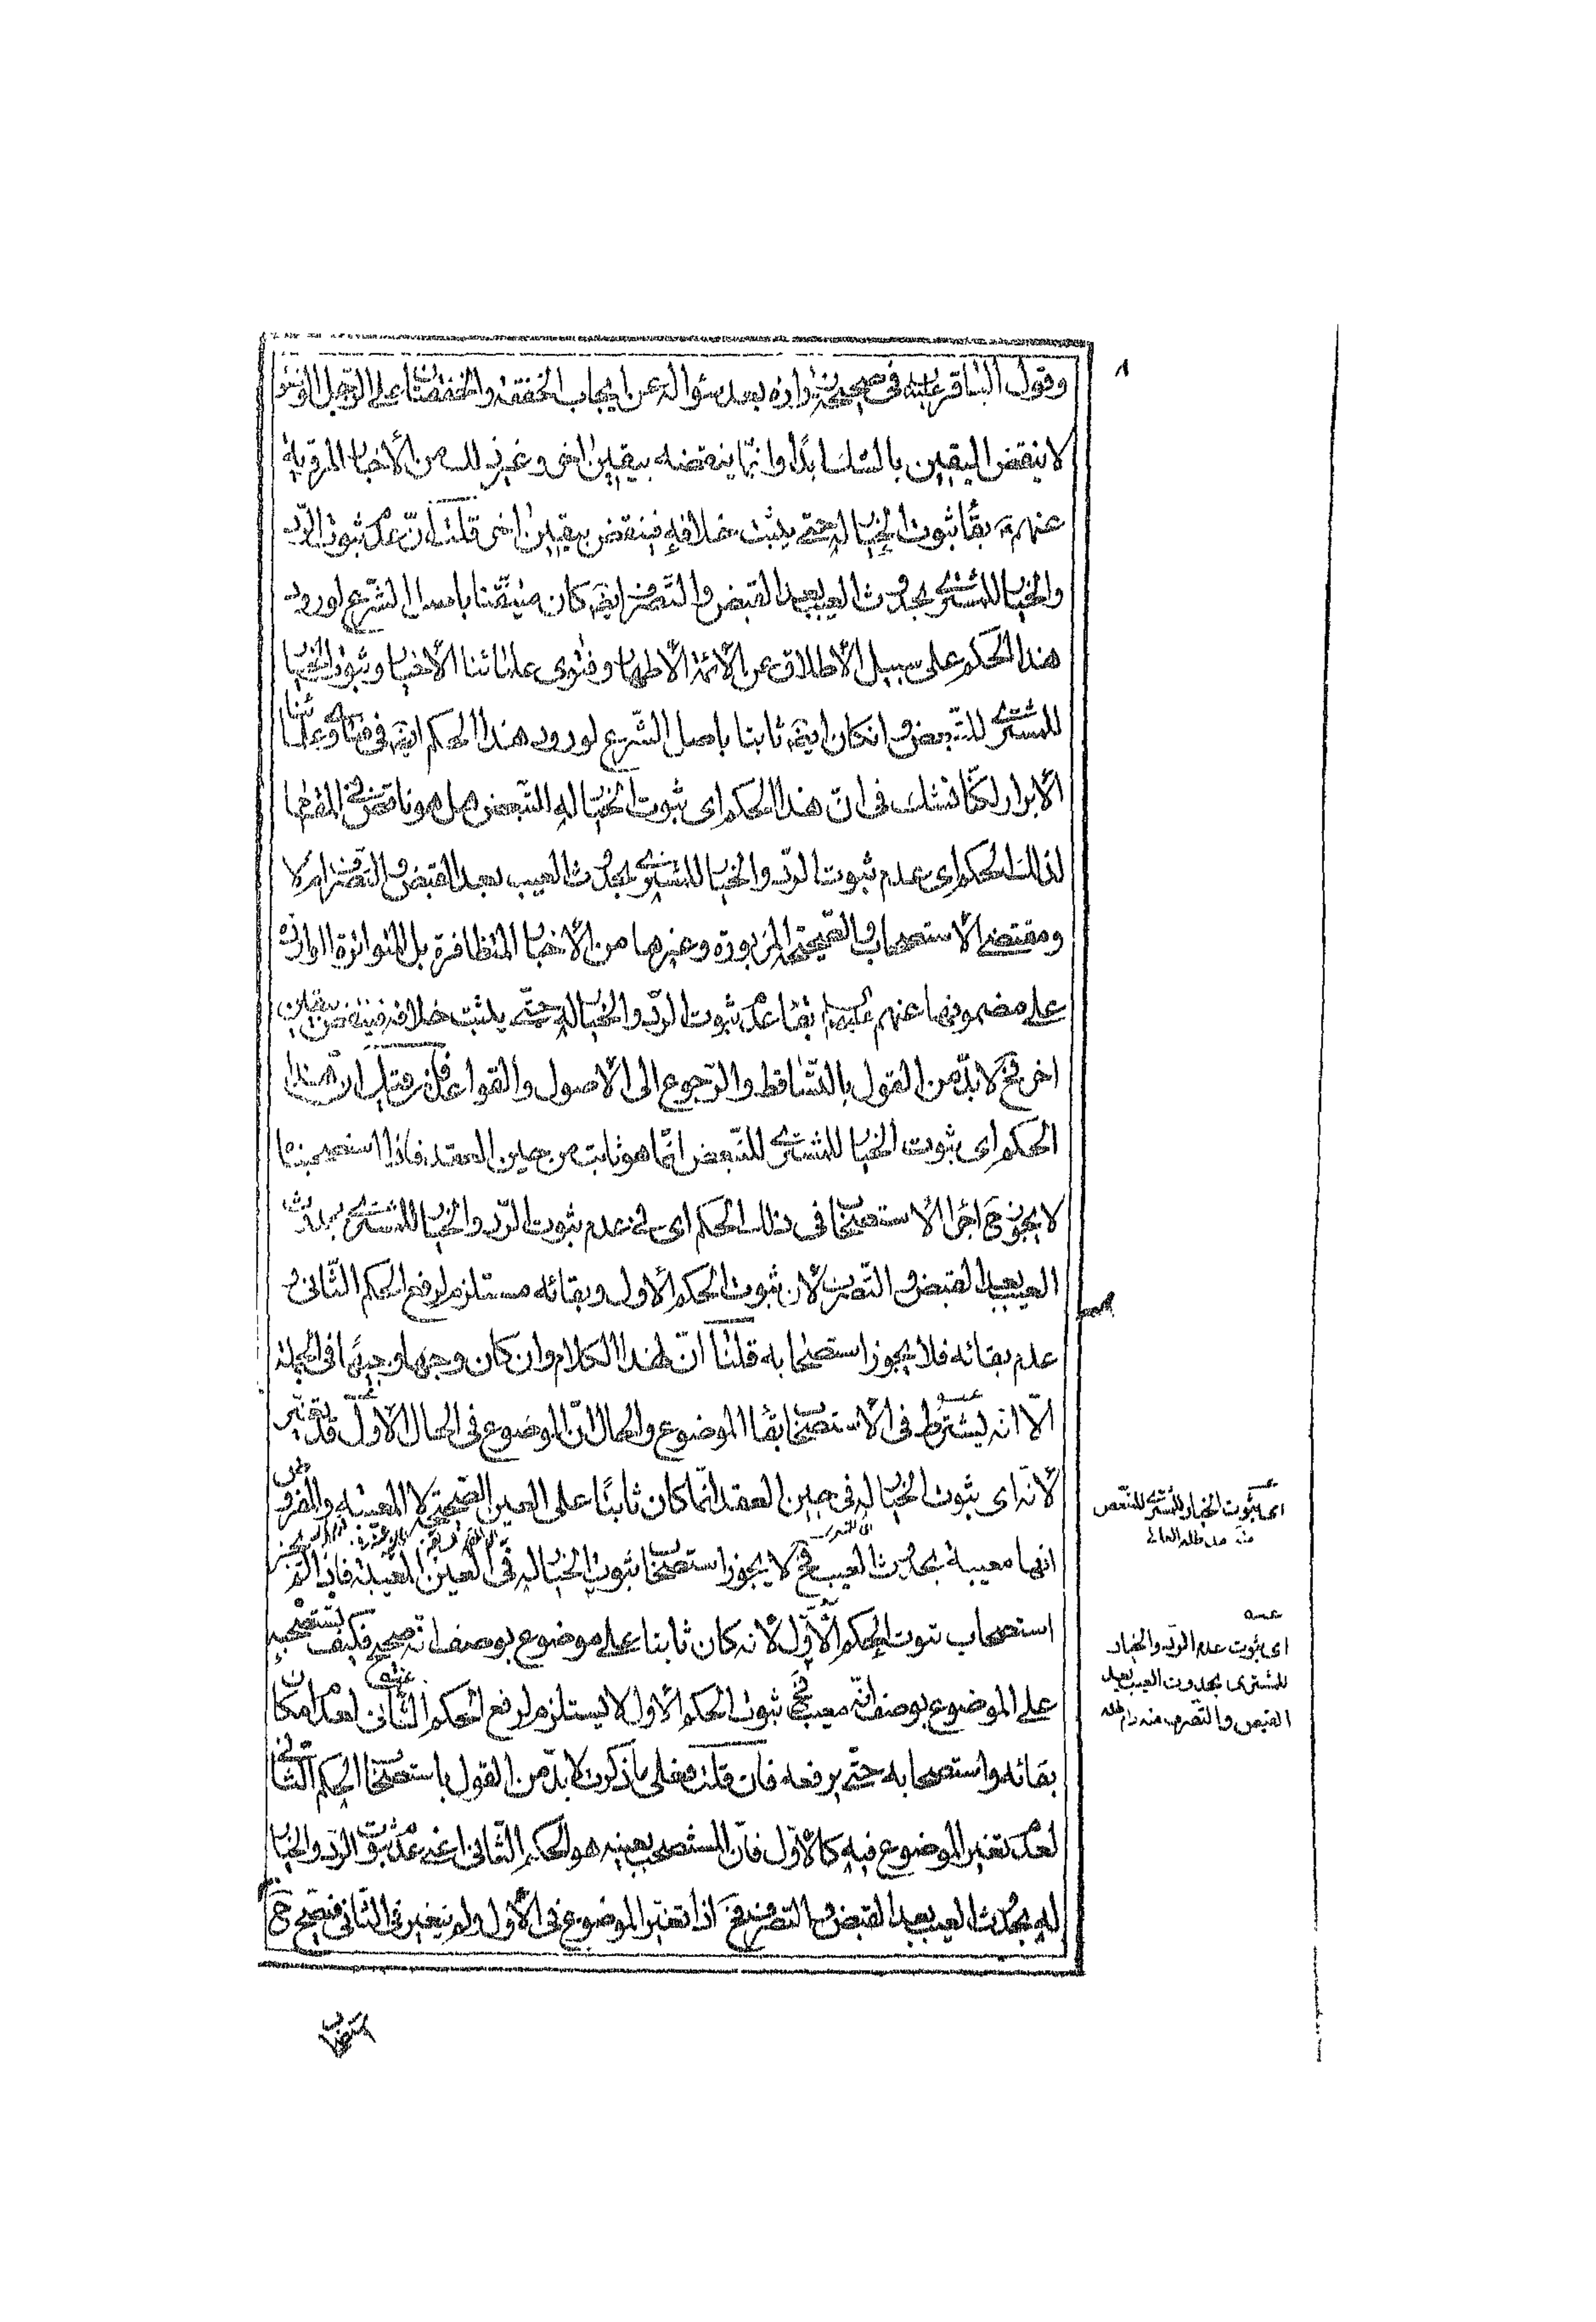 ٨
وقول الباقر عليه في صحيحة زرارة بعد سؤاله عن ايجاب الخفقة والخفقتان على الرجل الوضوء
لا ينقض اليقين بالشك ابدًا وانّما ينقضه بيقين اخر وغير ذلك من الأخبار المرويّة
عنهم بقاء ثبوت الخيار له حتى يثبت خلافه فينقض بيقين اخر قلت انّ عدم ثبوت الردّ
والخيار للمشترى بحدوث العيب بعد القبض والتصرف ايضًا كان متيقّنا باصل الشرع لورود
هذا الحكم على سبيل الأطلاق عن الأئمة الأطهار وفتوى علمائنا الأخيار وثبوت الخيار
للمشترى للتبعض وانكان ايضًا ثابتا باصل الشرع لورود هذا الحكم ايضًا في علمائنا
الأبرار لكنّا نشك في انّ هذا الحكم اى ثبوت الخيار له للتبعض هل هو ناقض
لذلك الحكم اى عدم ثبوت الردّ والخيار للمشترى بحدوث العيب بعد القبض والتصرف ام لا
ومقتضى الأستصحاب والصحيحة المزبورة وغيرها من الأخبار المتظافرة بل المتواترة الواردة
على مضمونها عنهم عليهم بقاء عدم ثبوت الردّ والخيار له حتى يثبت خلافه فينقض بيقين
اخر فح لا بدّ من القول بالتساقط والرّجوع الى الأصول والقواعد فان قيل انّ هذا
الحكم اى ثبوت الخيار للمشترى للتبعض انّما هو ثابت من حين العقد فاذا استصحبناه
لا يجوز ح اجراء الأستصحاب في ذلك الحكم اى في عدم ثبوت الردّ والخيار للمشترى بحدوث
العيب بعد القبض والتصرف لأن ثبوت الحكم الأول وبقائه مستلزم لرفع الحكم الثّانى و
عدم بقائه فلا يجوز استصحابه قلنا انّ هذا الكلام وان كان وجها وجيهًا في الجملة
الّا انه يشترط في الأستصحاب بقاء الموضوع والحال انّ الموضوع في الحال الأوّل قد تغيّر
لأنّه اى ثبوت الخيار له في حين العقد انّما كان ثابتًا على العين الصحيحة لا المعيبة والمفروض
انها معيبة بحدوث العيب فح لا يجوز استصحاب ثبوت الخيار له في العين المعيبة فاذا لم يجز
استصحاب ثبوت الحكم الأوّل لأنه كان ثابتا على موضوع بوصف انّه صحيح فكيف يستصحبه
على الموضوع بوصف انّه معيب فح ثبوت الحكم الأول لا يستلزم لرفع الحكم الثّانى لعدم امكان
بقائه واستصحابه حتّى يرفعه فان قلت فعلى ما ذكرت لا بدّ من القول باستصحاب الحكم الثّانى
لعدم تغير الموضوع فيه كالأوّل فانّ المستصحب بعينه هو الحكم الثّانى اعنى عدم ثبوت الردّ والخيار
له بحدوث العيب بعد القبض والتصرف فح اذا تغيّر الموضوع في الأوّل ولم يتغير في الثّانى فيصح ح
اى ثبوت الخيار للمشترى للتبعض
منه مد ظله العالى
اى ثبوت عدم الردّ والخيار
للمشترى بحدوث العيب بعد
القبض والتصرف منه دام ظله
استصحاب